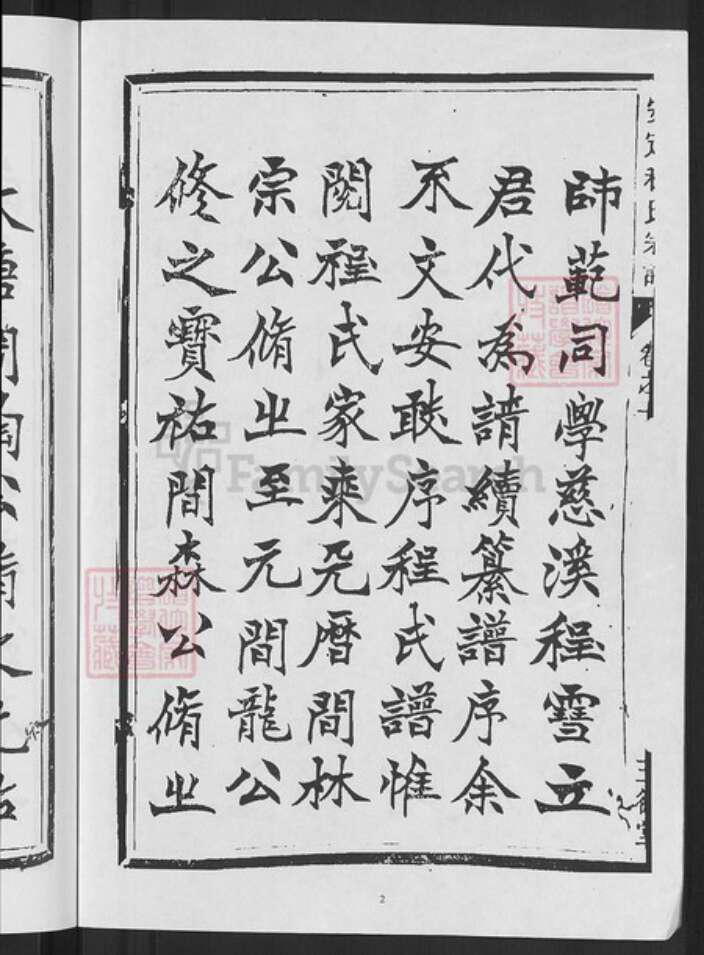 師範同學慈溪程雪立
君代為譜續纂譜序余
不文安敢序程氏譜惟
閱程氏家乘元曆間林
宗公脩之至元間龍公
修之寶祐間森公脩之
FamilySearch
2